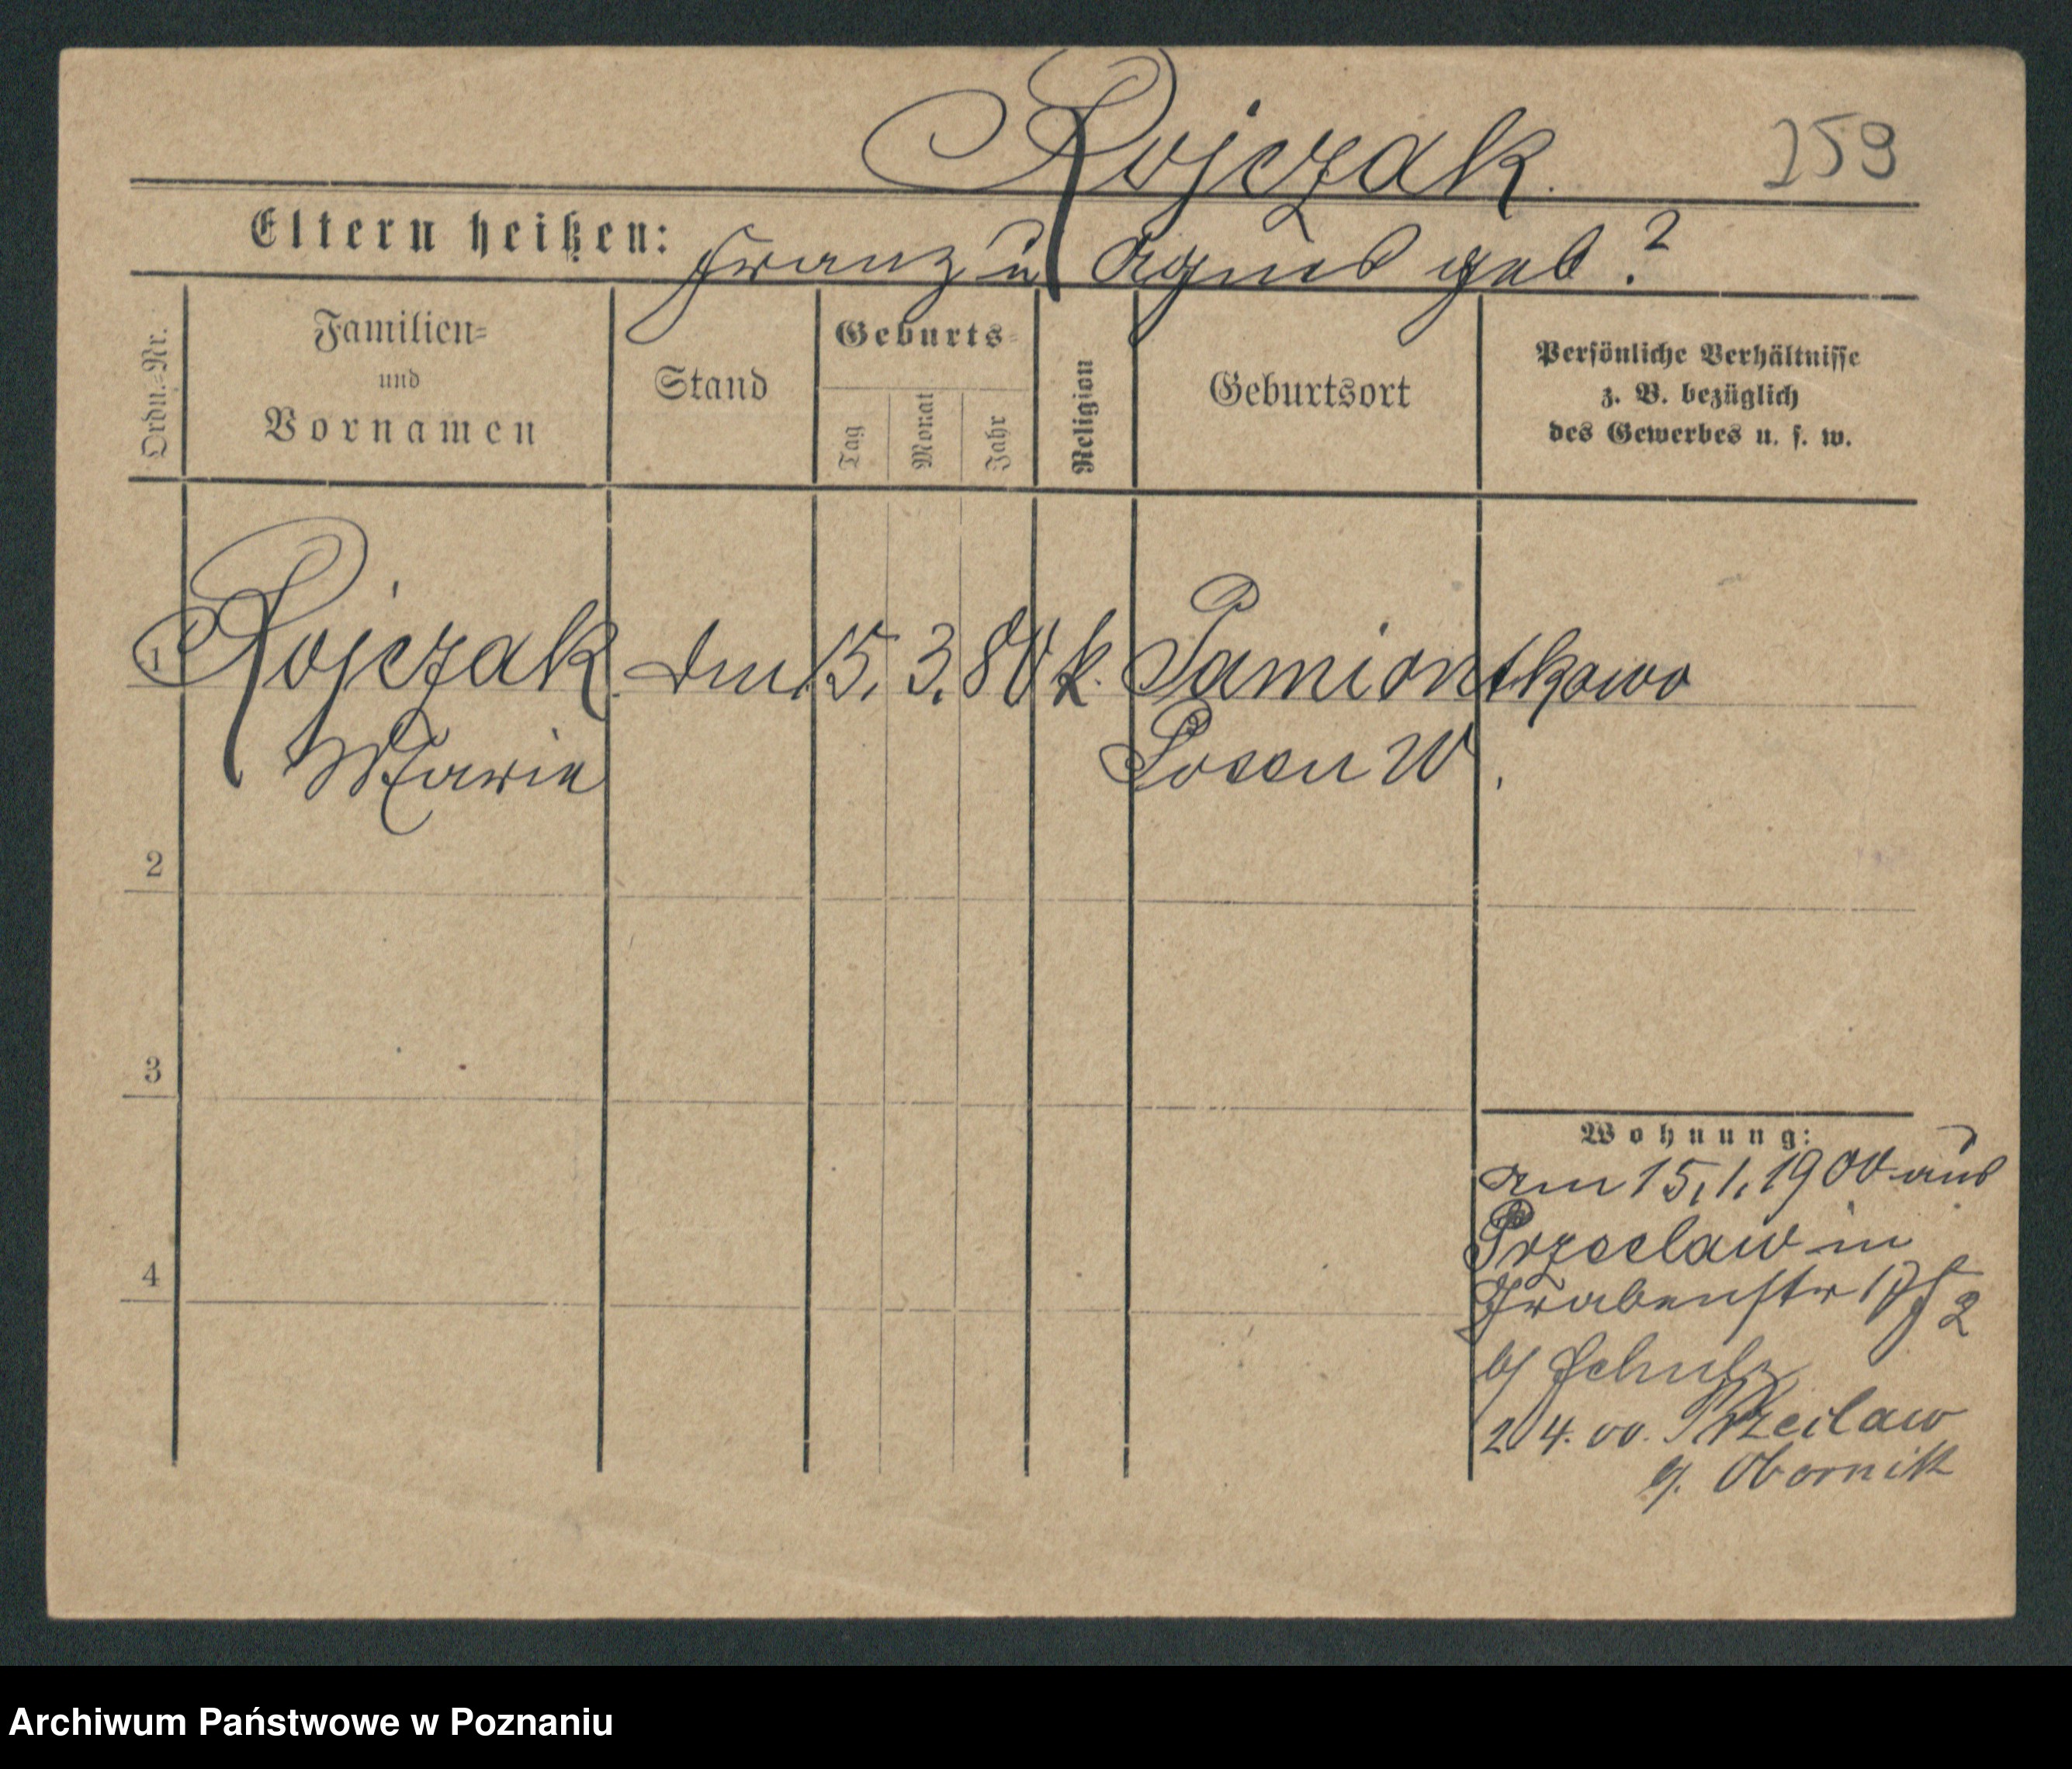 Rojczak. 259
Eltern heißen: Franz u Agnes geb. ?
Ordn.-Nr.
Familien=
und
Vornamen
Stand
Geburts=
Tag
Monat
Jahr
Religion
Geburtsort
Persönliche Verhältnisse
z. B. bezüglich
des Gewerbes u. s. w.
1 Rojczak. 15. 3. 80 k. Pamiontkowo
Marie Posen W.
2
3
4
Wohnung:
am 15.1.1900 aus
Przeclaw in
Grabenstr
b/ Schulz
2/4. 00. Przeclaw
b/. Obornik
Archiwum Państwowe w Poznaniu